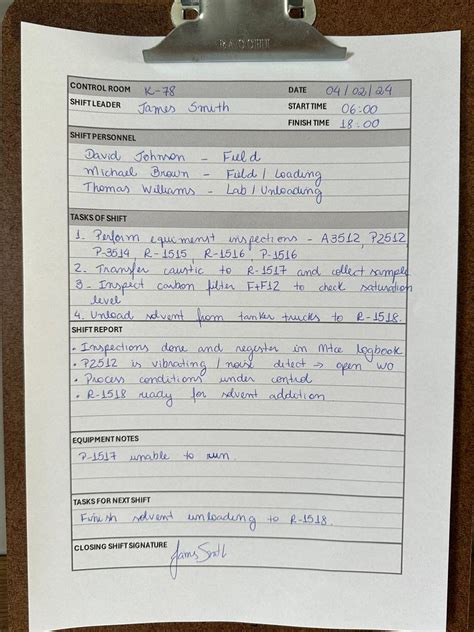 CONTROL ROOM K-78 DATE 04/02/24
SHIFT LEADER James Smith START TIME 06:00
FINISH TIME 18:00
SHIFT PERSONNEL
David Johnson - Field
Michael Brown - Field / Loading
Thomas Williams - Lab / Unloading
TASKS OF SHIFT
1_ Perform equimenst inspections - A3512, P2512,
P-3514, R-1515, R-1516, P-1516
2_ Transfer caustic to R-1517 and collect sample
3_ Inspect carbon filter F+F12 to check saturation
level
4_ Unload solvent from tanker trucks to R-1518.
SHIFT REPORT
• Inspections done and register in Mtce logbook
• P2512 is vibrating / noise detect → open WO
• Process conditions under control
• R-1518 ready for solvent addition
EQUIPMENT NOTES
P-1517 unable to run.
TASKS FOR NEXT SHIFT
Finish solvent unloading to R-1518.
CLOSING SHIFT SIGNATURE James Smith